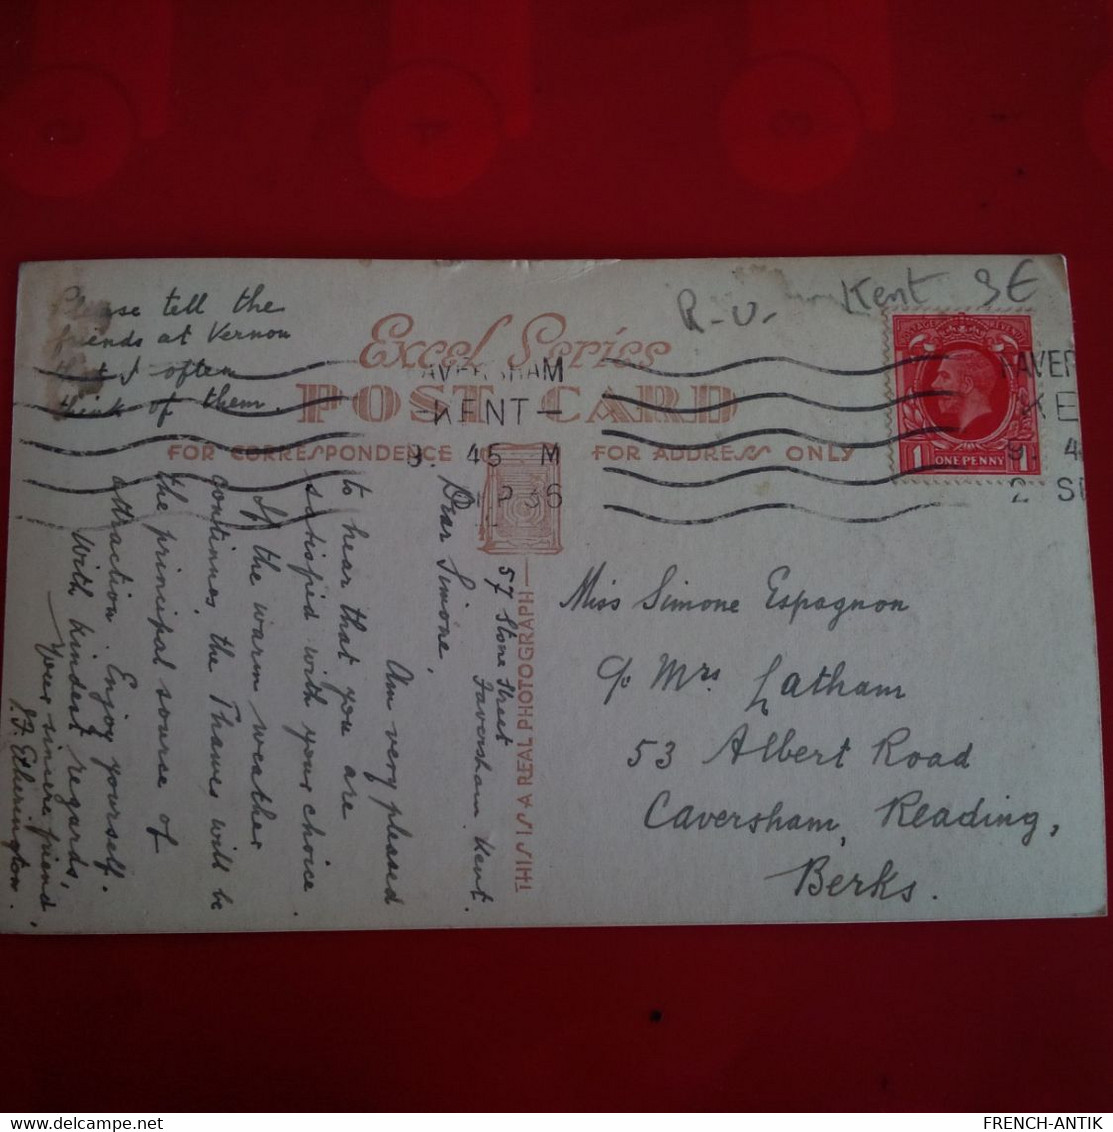 R-U- Kent 3€
Please tell the
friends at Vernon
that I often
think of them.
Excel Series
POST CARD
FOR CORRESPONDENCE
FOR ADDRESS ONLY
AVERSHAM
KENT
9. 45 M
P 36
FAVER
KE
9. 4
2 SE
POSTAGE REVENUE
1 ONE PENNY 1
57 Stone Street
Faversham. Kent.
Dear Simone
Am very pleased
to hear that you are
satisfied with your choice.
If the warm weather
continues the Thames will be
the principal source of
attraction. Enjoy yourself.
With kindest regards,
Your sincere friend,
J.F. Etherington.
THIS IS A REAL PHOTOGRAPH
Miss Simone Espagnon
c/o Mrs Latham
53 Albert Road
Caversham, Reading,
Berks.
FRENCH-ANTIK